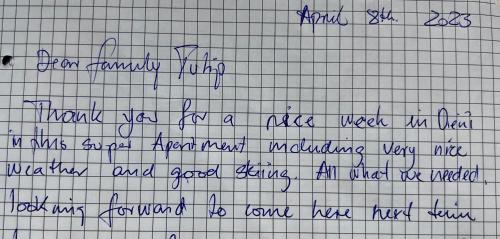 April 8th 2023
Dear family
Thank you for a nice week in
in this super Apartment including very nice
weather and good skiing. All what we needed.
looking forward to come here next